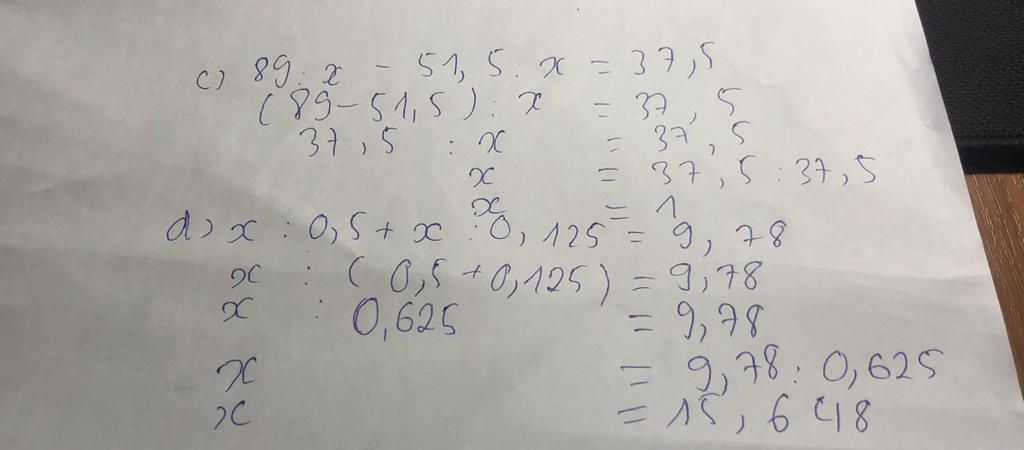 c) 89 : x - 51,5 : x = 37,5
(89-51,5) : x = 37,5
37,5 : x = 37,5
x = 37,5 : 37,5
x = 1
d) x : 0,5 + x : 0,125 = 9,78
x : (0,5 + 0,125) = 9,78
x : 0,625 = 9,78
x = 9,78 : 0,625
x = 15,648